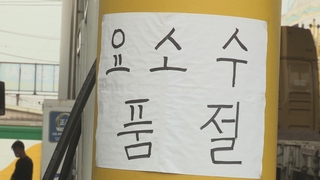 요소수
품절